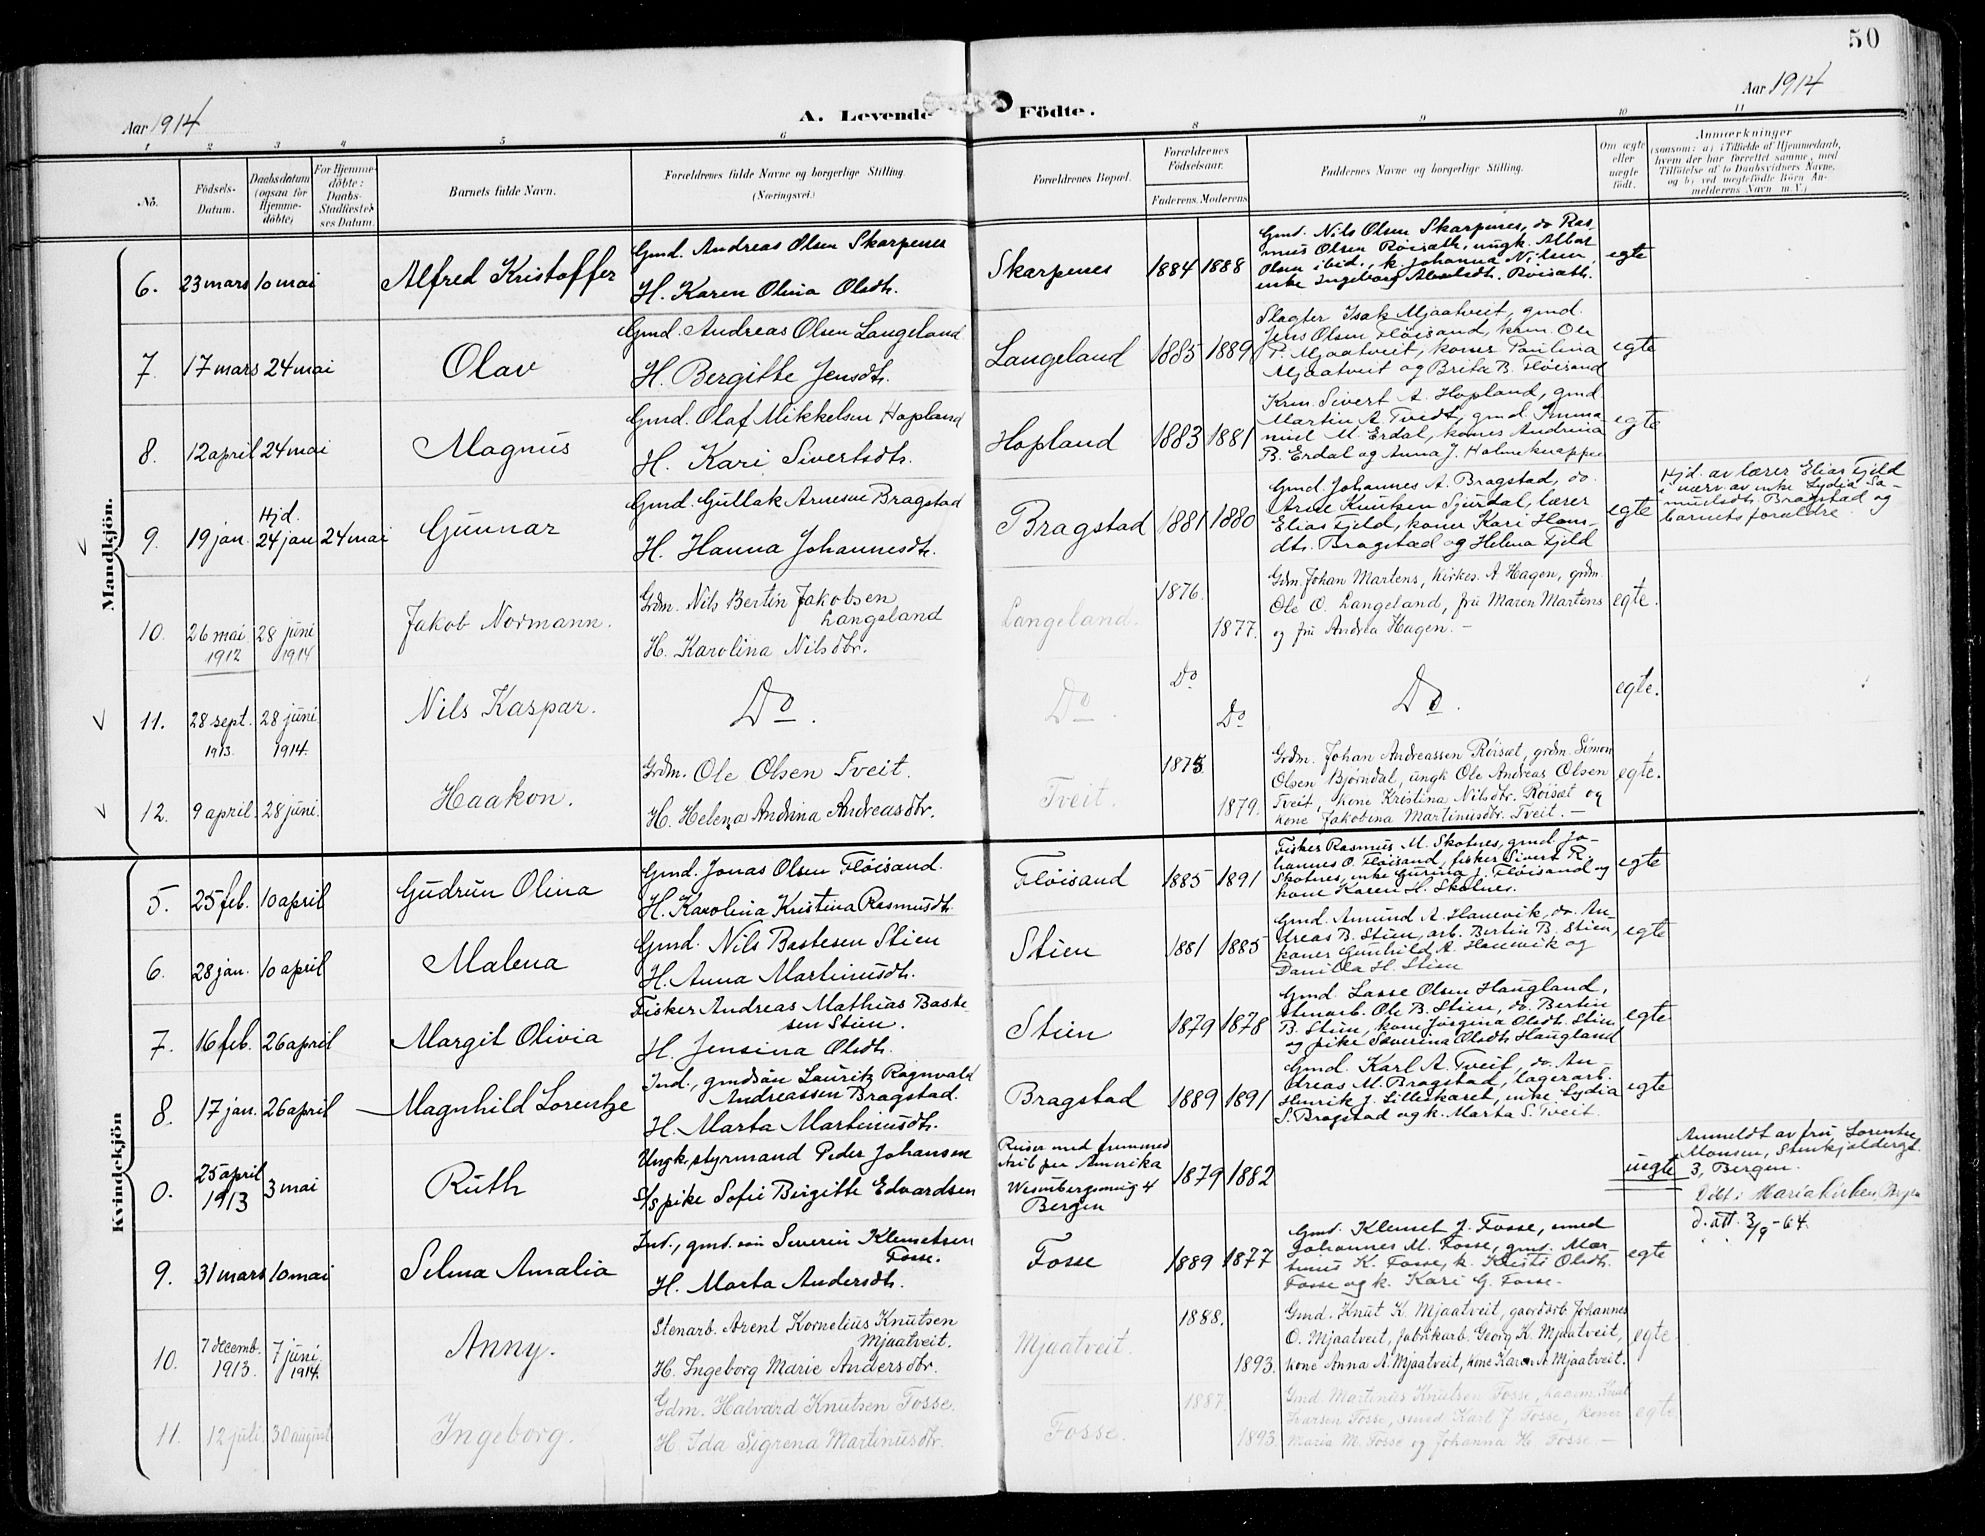 50
Aar 1914
A. Levende Födte.
Aar 1914
1 2 3 4 5 6 8 9 10 11
No.
Födsels-Datum.
Daabsdatum (ogsaa for Hjemmedöbte)
For Hjemmedöbte: Daabs-Stadfæstelses Datum.
Barnets fulde Navn.
Forældrenes fulde Navne og borgerlige Stilling. (Næringsvei.)
Forældrenes Bopæl.
Forældrenes Födselsaar.
Faderens. Moderens.
Faddernes Navne og borgerlige Stilling.
Om ægte eller uægte født.
Anmærkninger
(saasom: a) i Tilfælde af Hjemmedaab, hvem der har forrettet samme, med Tilföielse af to Daabsvidners Navne, og b) ved uegtefödte Börn Anmelderens Navn m. V.)
Mandkjön.
6. 23 mars 10 mai
Alfred Kristoffer
Gmd. Andreas Olsen Skarpenes
H. Karen Olina Olsdtr.
Skarpenes 1884 1888
Gmd. Nils Olsen Skarpenes, do Ras-
mus Olsen Röisæth, ungk.
Olsen ibid., k. Johanna Nilsen,
enke Ingeborg Röisæth.
egte
7. 17 mars 24 mai
Olav
Gmd. Andreas Olsen Langeland
H. Bergitte Jensdtr.
Langeland 1885 1889
Slagter Isak Mjaatveit, gmd.
Jens Olsen Flöisand, krm. Ole
P. Mjaatveit, koner Paulina
Mjaatveit og Brita B. Flöisand
egte
8. 12 april 24 mai
Magnus
Gmd. Olaf Mikkelsen Hopland
H. Kari Sivertsdtr.
Hopland 1883 1881
Krm. Sivert A. Hopland, gmd.
Martin A. Tvedt, gmd. Imma
nuel M. Erdal, koner Andrina
B. Erdal og Anna J. Holmeknappen
egte
9. 19 jan. Hjd. 24 jan 24 mai
Gunnar
Gmd. Gullak Arnesen Bragstad
H. Hanna Johannesdtr.
Bragstad 1881 1880
Gmd. Johannes A. Bragstad, do.
Arne Knutsen Sjurdal, lærer
Elias Fjeld, koner Kari Hans-
dtr. Bragstad og Helena Fjeld
egte
Hjd. av lærer Elias Fjeld
i nærv. av enke Lydia Sa-
muelsdtr. Bragstad og
barnets forældre.
10. 26 mai 1912 28 juni 1914
Jakob Normann.
Grdm. Nils Bertin Jakobsen
Langeland
H. Karolina Nilsdtr.
Langeland. 1876. 1877.
Grdm. Johan Martens, kirkes. A. Hagen, grdm.
Ole O. Langeland, fru Maren Martens
og fru Andrea Hagen. –
egte.
11. 28 sept. 1913. 28 juni 1914.
Nils Kaspar.
Do.
Do. Do Do
Do.
egte.
12. 9 april. 28 juni.
Haakon.
Grdm. Ole Olsen Tveit.
H. Helena Andrina Andreasdtr.
Tveit. 1875. 1879.
Grdm. Johan Andreassen Röisæt, grdm. Simon
Olsen Bjørndal, ungk Ole Andreas Olsen
Tveit, kone Kristina Nilsdtr. Röisæt og
kone Jakobina Martinusdtr. Tveit. –
egte.
Kvindekjön
5. 25 feb. 10 april
Gudrun Olina
Gmd. Jonas Olsen Flöisand.
H. Karolina Kristina Rasmusdtr.
Flöisand 1885 1891
Fisker Rasmus M. Skotnes, gmd. Jo-
hannes O. Flöisand, fisker Sivert R.
Skotnes, enke Gurina J. Flöisand og
kone Karen H. Skotnes.
egte
6. 28 jan. 10 april
Malena
Gmd. Nils Bastesen Stien
H. Anna Martinusdtr.
Stien 1881 1885
Gmd. Amund A. Hanevik, do. An-
dreas B. Stien, arb. Bertin B. Stien,
koner Gunhild A. Hanevik og
Danilla H. Stien
egte
7. 16 feb. 26 april
Margit Olivia
Fisker Andreas Mathias Baste
sen Stien.
H. Jensina Olsdtr.
Stien 1879 1878
Gmd. Lasse Olsen Haugland,
stenarb. Ole B. Stien, do. Bertin
B. Stien, kone Jörgina Olsdtr. Stien
og pike Severina Olsdtr. Haugland
egte
8. 17 jan. 26 april
Magnhild Lorentze
Ind., gmdsön Lauritz Ragnvald
Andreassen Bragstad.
H. Marta Martinusdtr.
Bragstad 1889 1891
Gmd. Karl A. Tveit, do. An-
dreas M. Bragstad, lagerarb.
Henrik J. Lillekaret, enke Lydia
S. Bragstad og k. Marta S. Tveit.
egte
0. 25 april 1913 3 mai
Ruth
Ungk. styrmand Peder Johansen
pike Sofie Birgitte Edvardsen
Reiser med fremmed
paa Amerika
4
Bergen
1879 1882
uegte
Anmeldt av fru Lorentze
Monsen, Stenkjeldergt.
3, Bergen.
Döbt i Mariakirken Bergen
d. att. 3/9-64.
9. 31 mars 10 mai
Selma Amalia
Ind., gmd. sön Severin Klemetsen
Fosse.
H. Marta Andersdtr.
Fosse 1889 1877
Gmd. Klemet J. Fosse, smed
Johannes M. Fosse, gmd. Mar-
tinus K. Fosse, k. Kristi Olsdtr.
Fosse og k. Kari G. Fosse.
egte
10. 7 decemb. 1913. 7 juni 1914.
Anny.
Stenarb. Arent Kornelius Knutsen
Mjaatveit.
H. Ingeborg Marie Andersdtr.
Mjaatveit. 1888. 1893.
Gmd. Knut K. Mjaatveit, gaardarb Johannes
O. Mjaatveit, fabrikarb. Georg K. Mjaatveit,
kone Anna A. Mjaatveit, kone Karen A. Mjaatveit.
egte.
11. 12 juli. 30 august
Ingeborg.
Gdm. Halvard Knutsen Fosse.
H. Ida Sigrena Martinusdtr.
Fosse. 1887. 1893.
Gmd. Martinus Knutsen Fosse, Knut
Ivarsen Fosse, smed Karl J. Fosse, koner
Maria M. Fosse og Johanna H. Fosse. –
egte